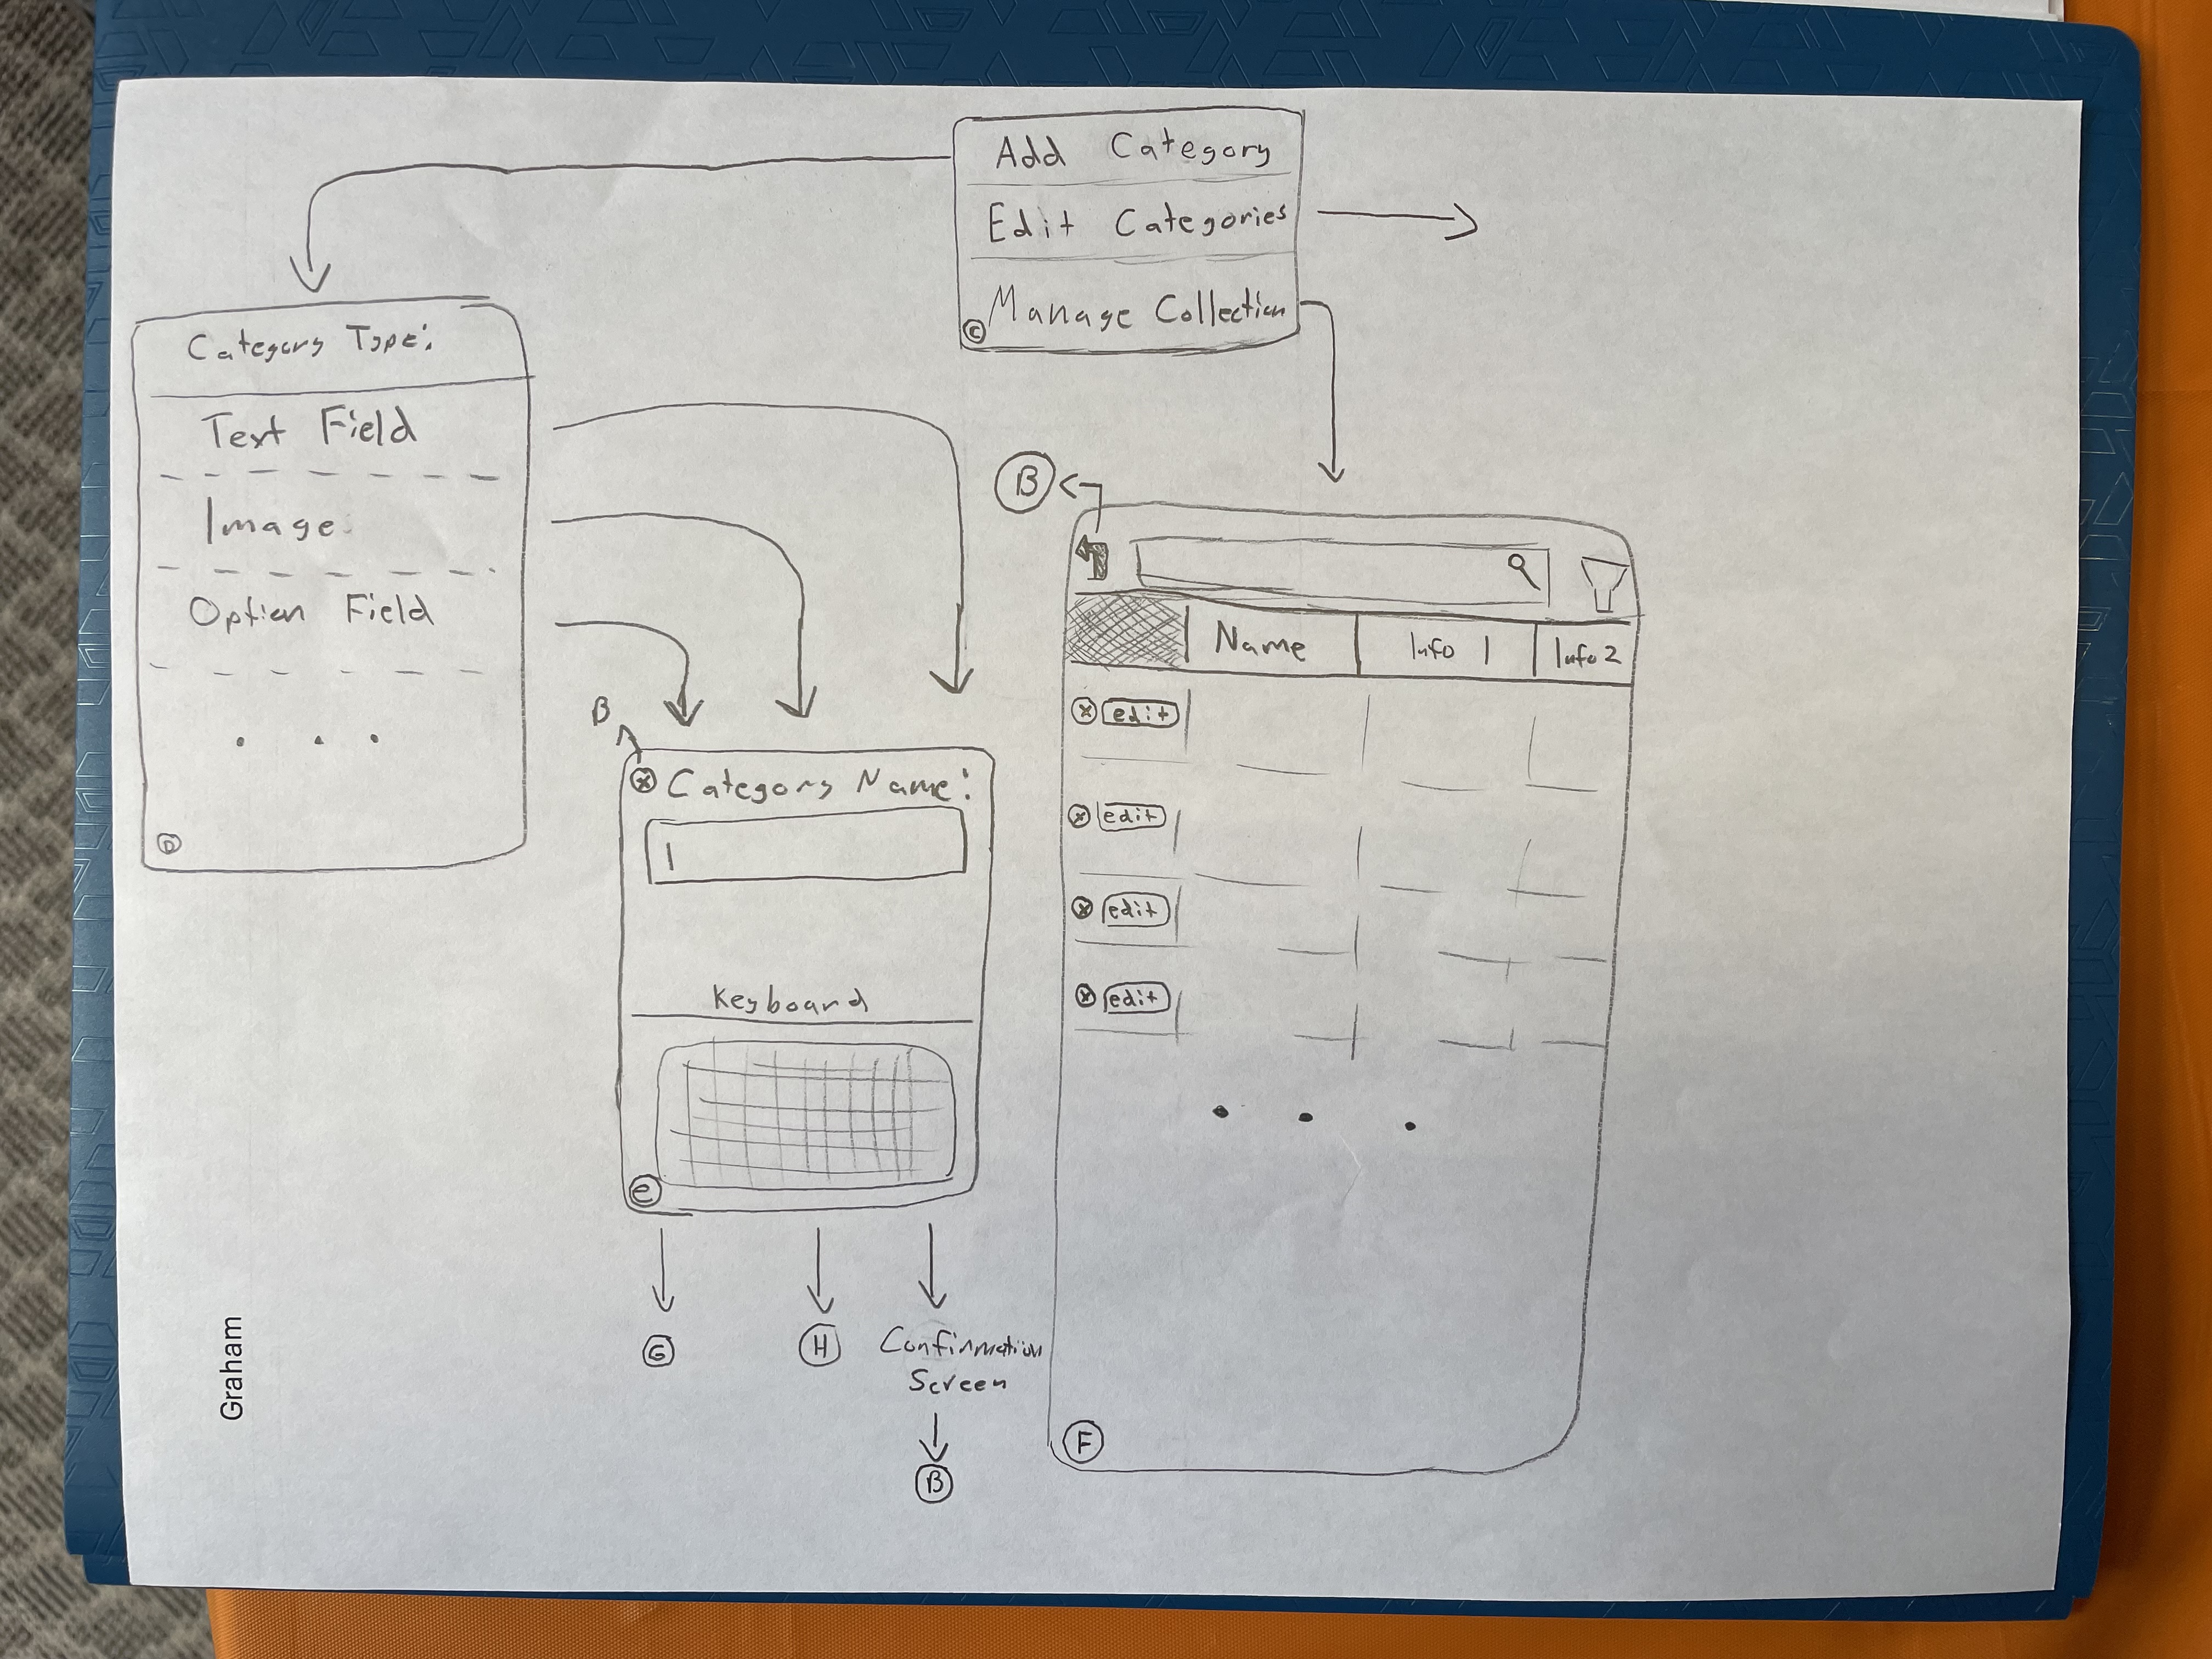 Add Category
Edit Categories
Manage Collection
C
Category Type:
Text Field
Image
Option Field
D
B
Category Name:
Keyboard
e
G
H
Confirmation
Screen
B
B
Name
Info 1
Info 2
edit
edit
edit
edit
F
Graham